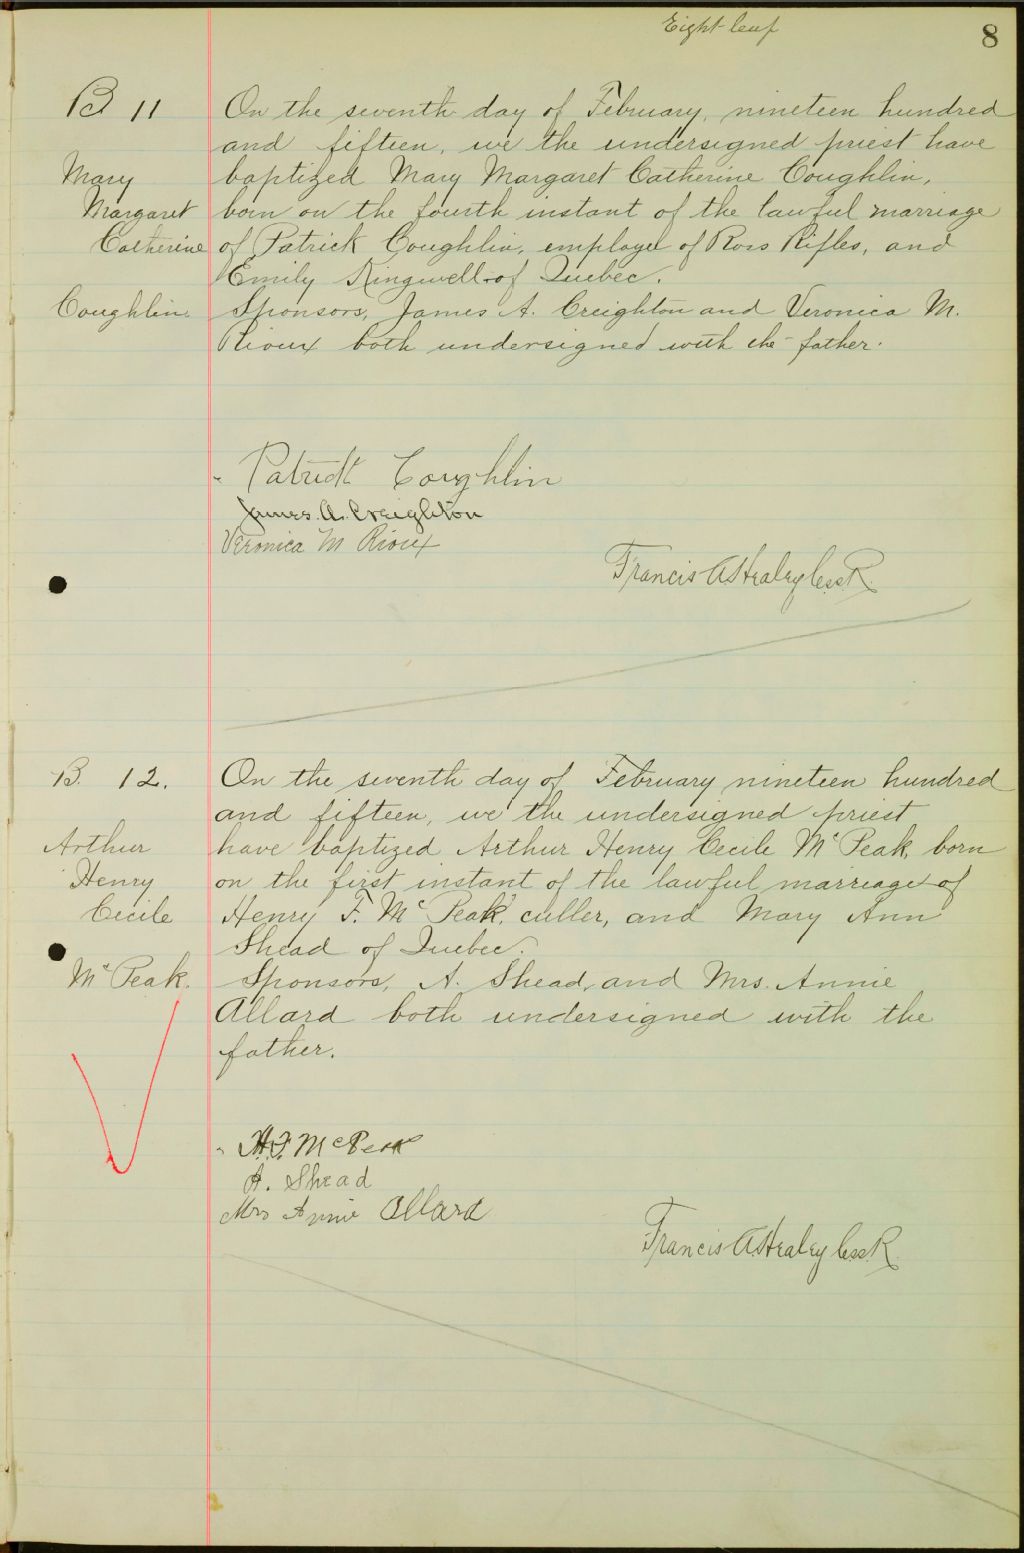 Eight leaf
8
B 11
On the seventh day of February, nineteen hundred
and fifteen, we the undersigned priest have
Mary
baptized Mary Margaret Catherine Coughlin,
Margaret
born on the fourth instant of the lawful marriage
Catherine
of Patrick Coughlin, employee of Ross Rifles, and
Emily Ringwell of Quebec.
Coughlin.
Sponsors, James A. Creighton and Veronica M.
Rioux both undersigned with the father.
Patrick Coughlin
James. A. Creighton
Veronica M Rioux
Francis A Healey C.ss.R.
B. 12.
On the seventh day of February nineteen hundred
and fifteen, we the undersigned priest
Arthur
have baptized Arthur Henry Cecile McPeak, born
Henry
on the first instant of the lawful marriage of
Cecile
Henry F. McPeak, culler, and Mary Ann
Shead of Quebec.
McPeak.
Sponsors, A. Shead, and Mrs. Annie
Allard both undersigned with the
father.
H.F. McPeak
A. Shead
Mrs Annie Allard
Francis A. Healey C.ss.R.